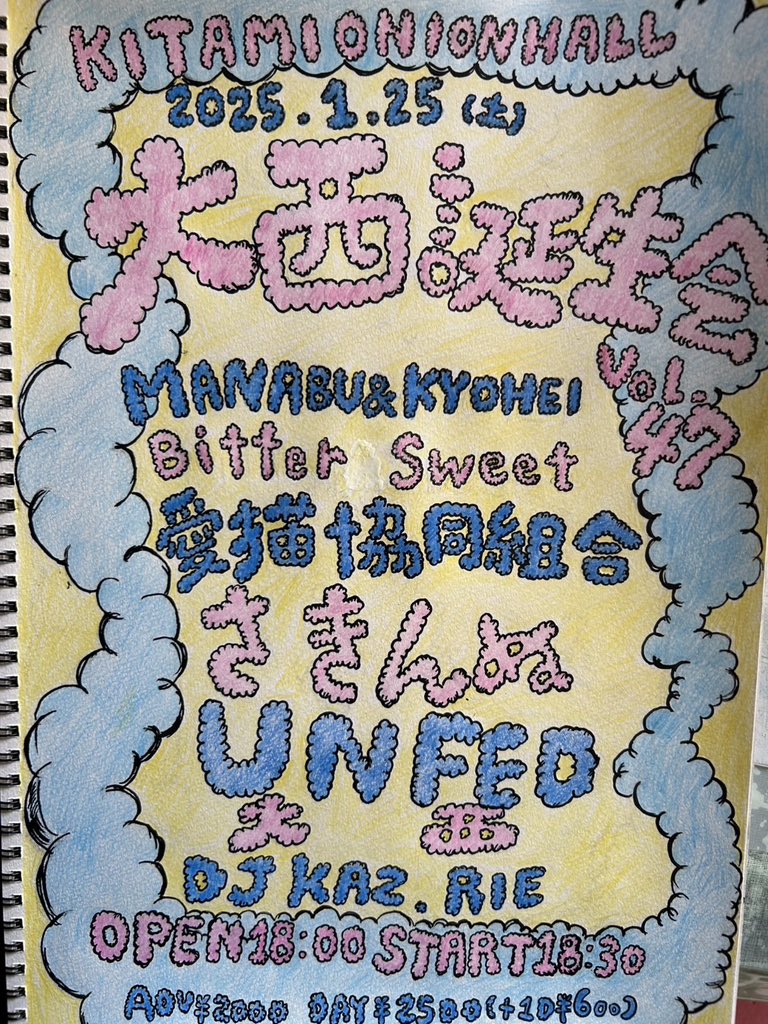 KITAMI ONION HALL
2025.1.25(土)
大西誕生会
Vol.47
MANABU&KYOHEI
Bitter Sweet
愛猫協同組合
さきんぬ
UNFED
大西
DJ KAZ.RIE
OPEN18:00 START18:30
ADV¥2000 DAY¥2500(+1D¥600)